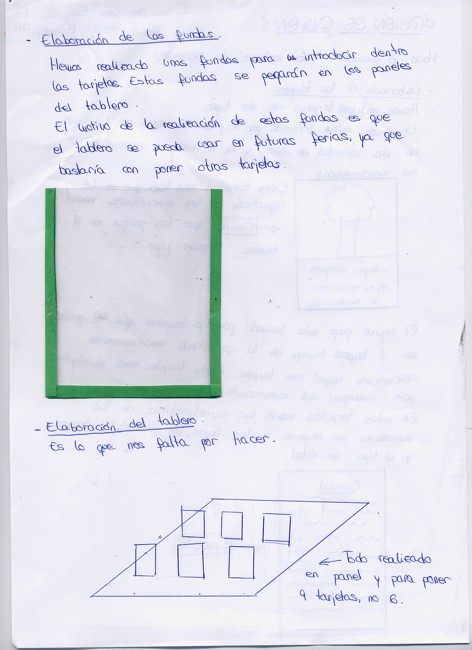 - Elaboración de las fundas.
Hemos realizado unas fundas para introducir dentro
las tarjetas. Estas fundas se pegarán en los paneles
del tablero.
El motivo de la realización de estas fundas es que
el tablero se pueda usar en futuras ferias, ya que
bastaría con poner otras tarjetas.
- Elaboración del tablero.
Es lo que nos falta por hacer.
← Todo realizado
en panel y para poner
9 tarjetas, no 6.